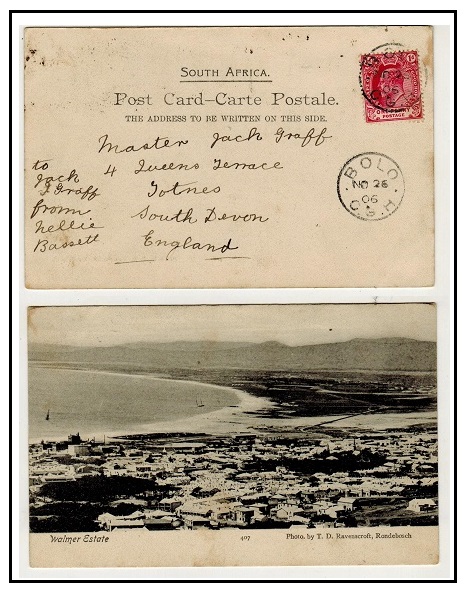 SOUTH AFRICA.
Post Card—Carte Postale.
THE ADDRESS TO BE WRITTEN ON THIS SIDE.
Master Jack Graff
4 Queens Terrace
Totnes
South Devon
England
to
Jack
Graff
from
Nellie
Bassett
POSTAGE
BOLO
NO 26
06
C.G.H.
Walmer Estate
407
Photo. by T. D. Ravenscroft, Rondebosch